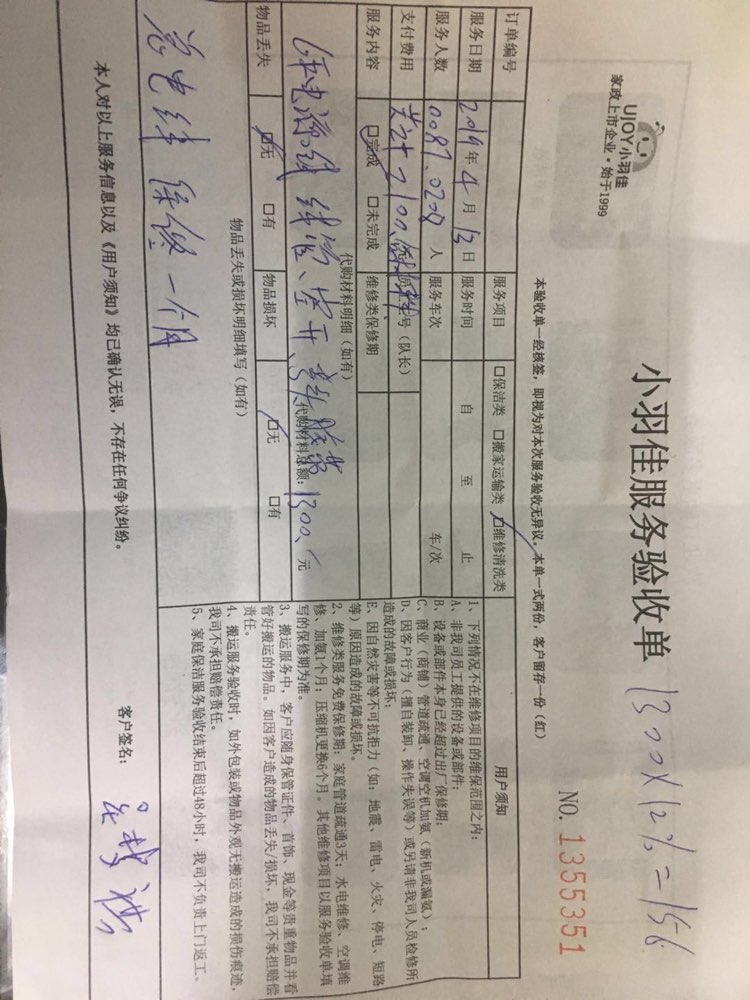 UJOY小羽佳
家政上市企业·始于1999
小羽佳服务验收单
1300×12%=156
NO. 1355351
本验收单一经核签，即视为对本次服务验收无异议。本单一式两份，客户留存一份（红）
订单编号
服务项目 □保洁类 □搬家运输类 ☑维修清洗类
服务日期 2019年4月13日 服务时间 自 至 止
服务人数 0087.0208 人 服务车次 车/次
支付费用 2100
号（队长）
服务内容 ☑完成 □未完成 维修类保修期
代购材料明细（如有）
代购材料总额：1300元
物品丢失 ☑无 □有 物品损坏 ☑无 □有
物品丢失或损坏明细填写（如有）
一个月
用户须知
1、下列情况不在维修项目的维保范围之内：
A、非我司员工提供的设备或部件；
B、设备或部件本身已经超过出厂保修期；
C、商业（商铺）管道疏通、空调空机加氨（新机或漏氨）；
D、因客户行为（擅自装卸、操作失误等）或另请非我司人员检修所
造成的故障或损坏；
E、因自然灾害等不可抗拒力（如：地震、雷电、火灾、停电、短路
等）原因造成的故障或损坏。
2、维修类服务免费保修期：家庭管道疏通3天；水电维修、空调维
修、加氨1个月；压缩机更换6个月。其他维修项目以服务验收单填
写的保修期为准。
3、搬运服务中，客户应随身保管证件、首饰、现金等贵重物品并看
管好搬运的物品。如因客户造成的物品丢失/损坏，我司不承担赔偿
责任。
4、搬运服务验收时，如外包装或物品外观无搬运造成的损伤痕迹，
我司不承担赔偿责任。
5、家庭保洁服务验收结束后超过48小时，我司不负责上门返工。
本人对以上服务信息以及《用户须知》均已确认无误，不存在任何争议纠纷。
客户签名：